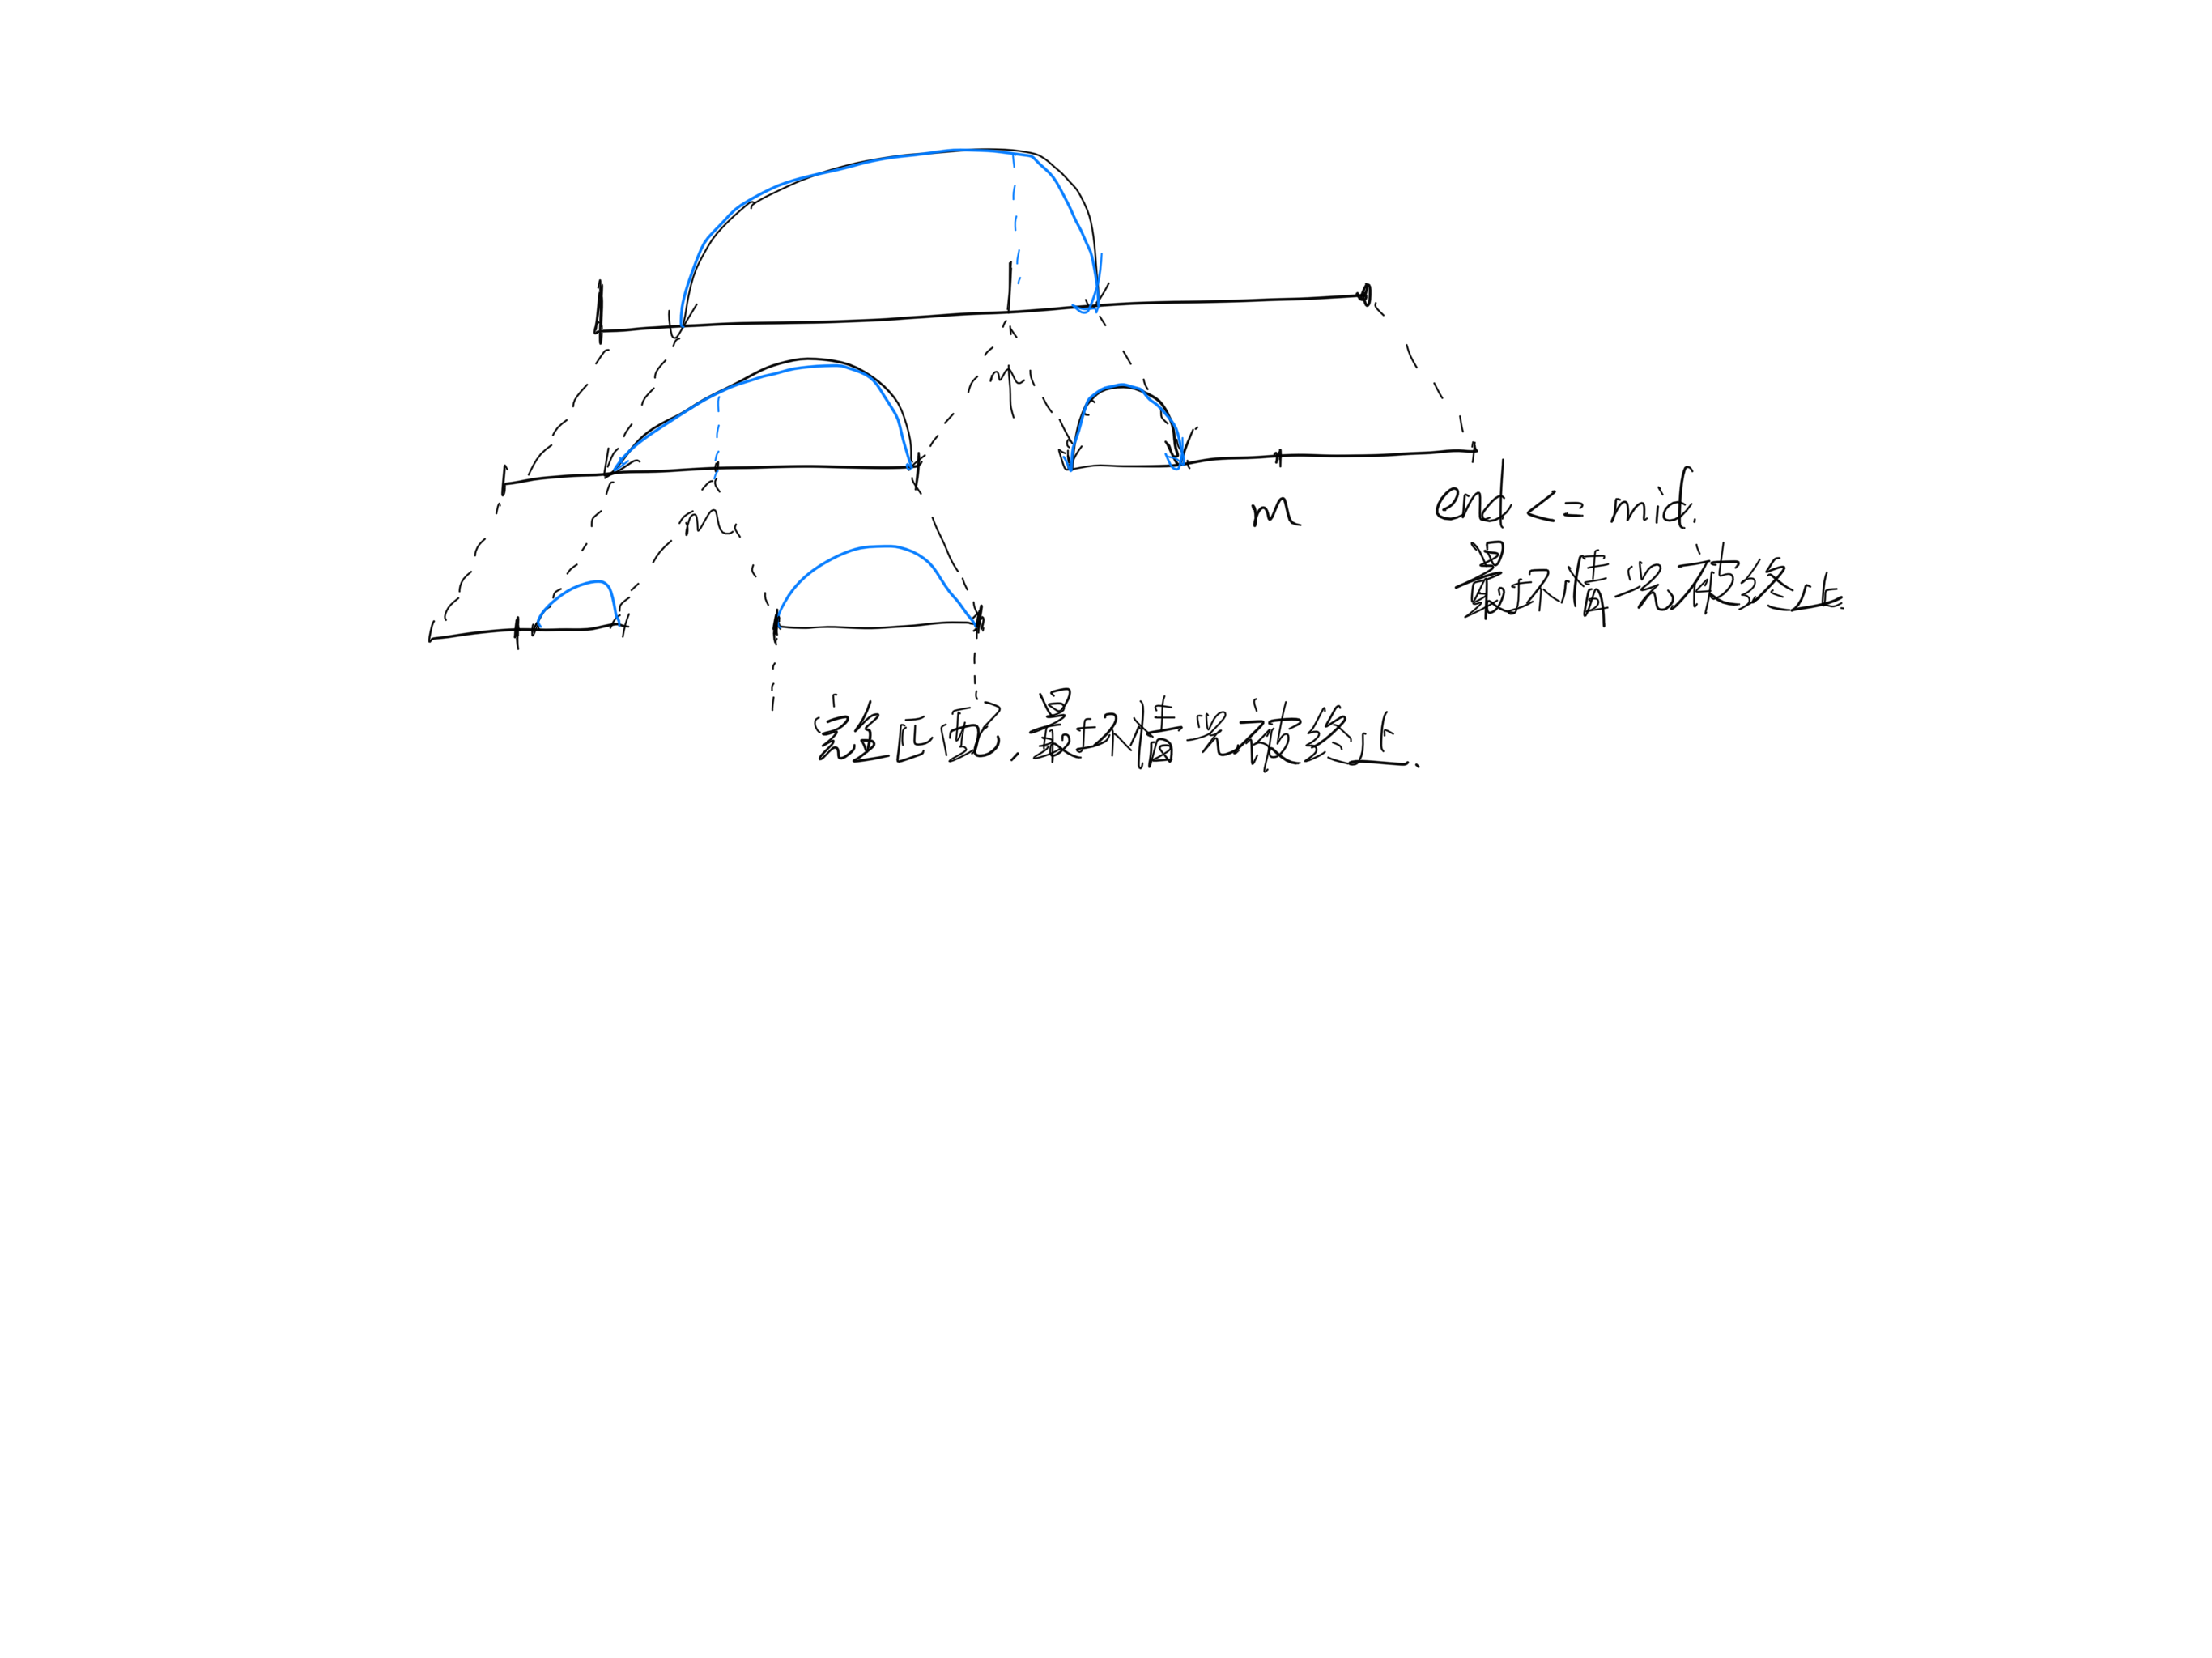 m
m
m
end <= mid.
最坏情况被终止.
完全匹配,最坏情况被终止.